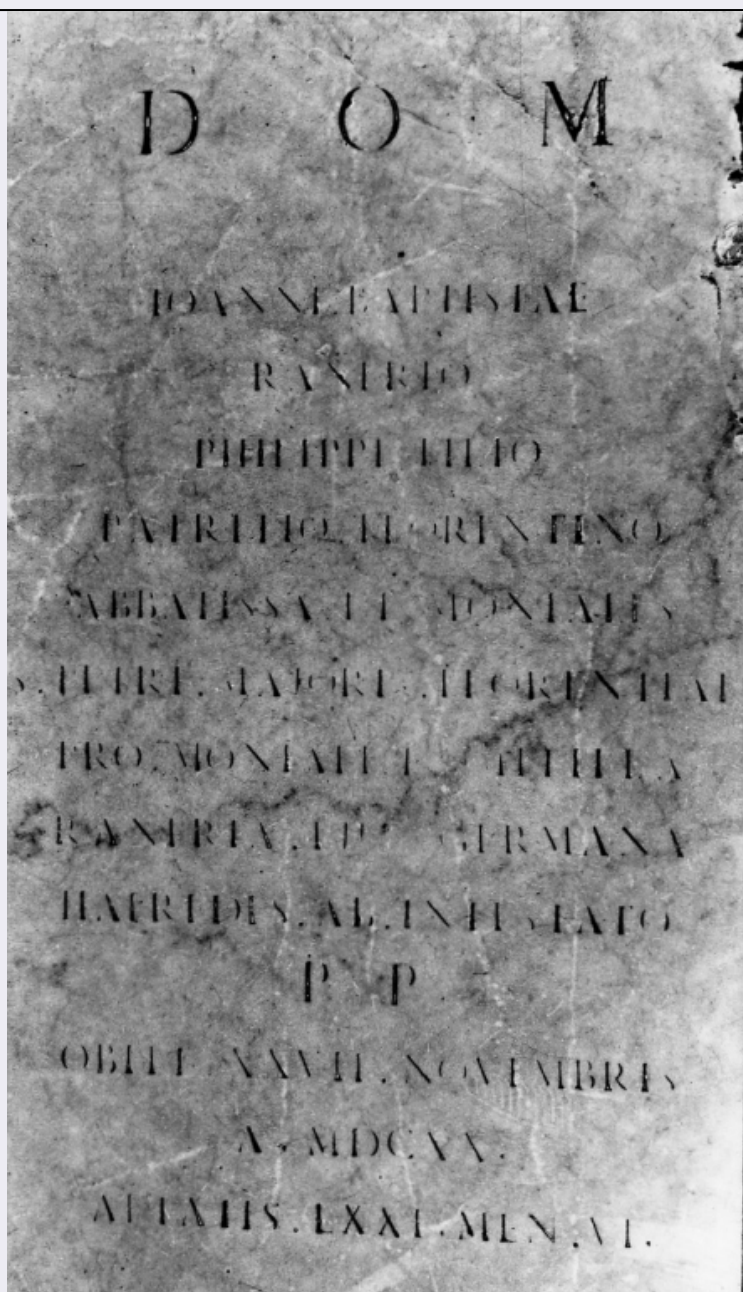 D O M
IOANNI BAPTISTAE
RANERIO
PHILIPPI FILIO
PATRITIO FLORENTINO
ABBATISSA ET MONIALES
S. PETRI MAJORIS FLORENTIAE
PRO MONIALI
RANERIA EIUS GERMANA
HAEREDES. AB. INTESTATO
P P
OBIIT XXVII. NOVEMBRIS
A MDCXX.
AETATIS. LXXI. MEN. VI.